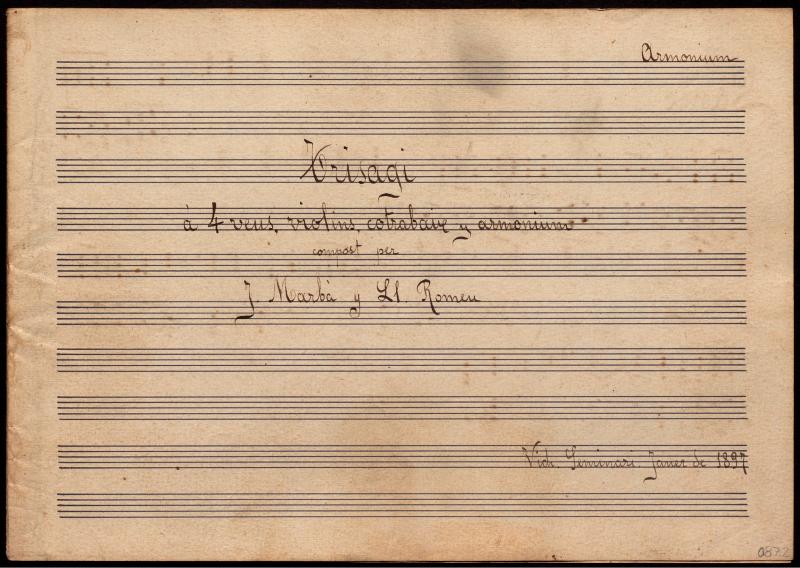 Armonium
Trisagi
à 4 veus, violins, cotrabaix y armonium
compost per
J. Marbà y Ll. Romeu
Vich. Seminari. Janer de 1897
0872